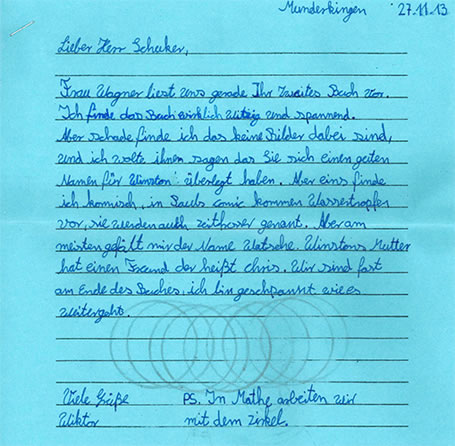 Munderkingen 27.11.13
Lieber Herr Scheuker,
Frau Wagner liest uns gerade Ihr zweites Buch vor.
Ich finde das Buch wirklich witzig und spannend.
Aber schade finde ich das keine Bilder dabei sind,
und ich wolte ihnen sagen das Sie sich einen guten
Namen für Winston überlegt haben. Aber eins finde
ich komisch, in Pauls Comic kommen Wassertropfen
vor, sie werden auch zeithoser genant. Aber am
meisten gefält mir der Name Watsche. Winstons Mutter
hat einen Freund der heißt chris. Wir sind fast
am Ende des Buches, ich bin geschpannt wie es
weitergeht.
Viele Grüße PS. In Mathe arbeiten wir
Wiktor mit dem zirkel.